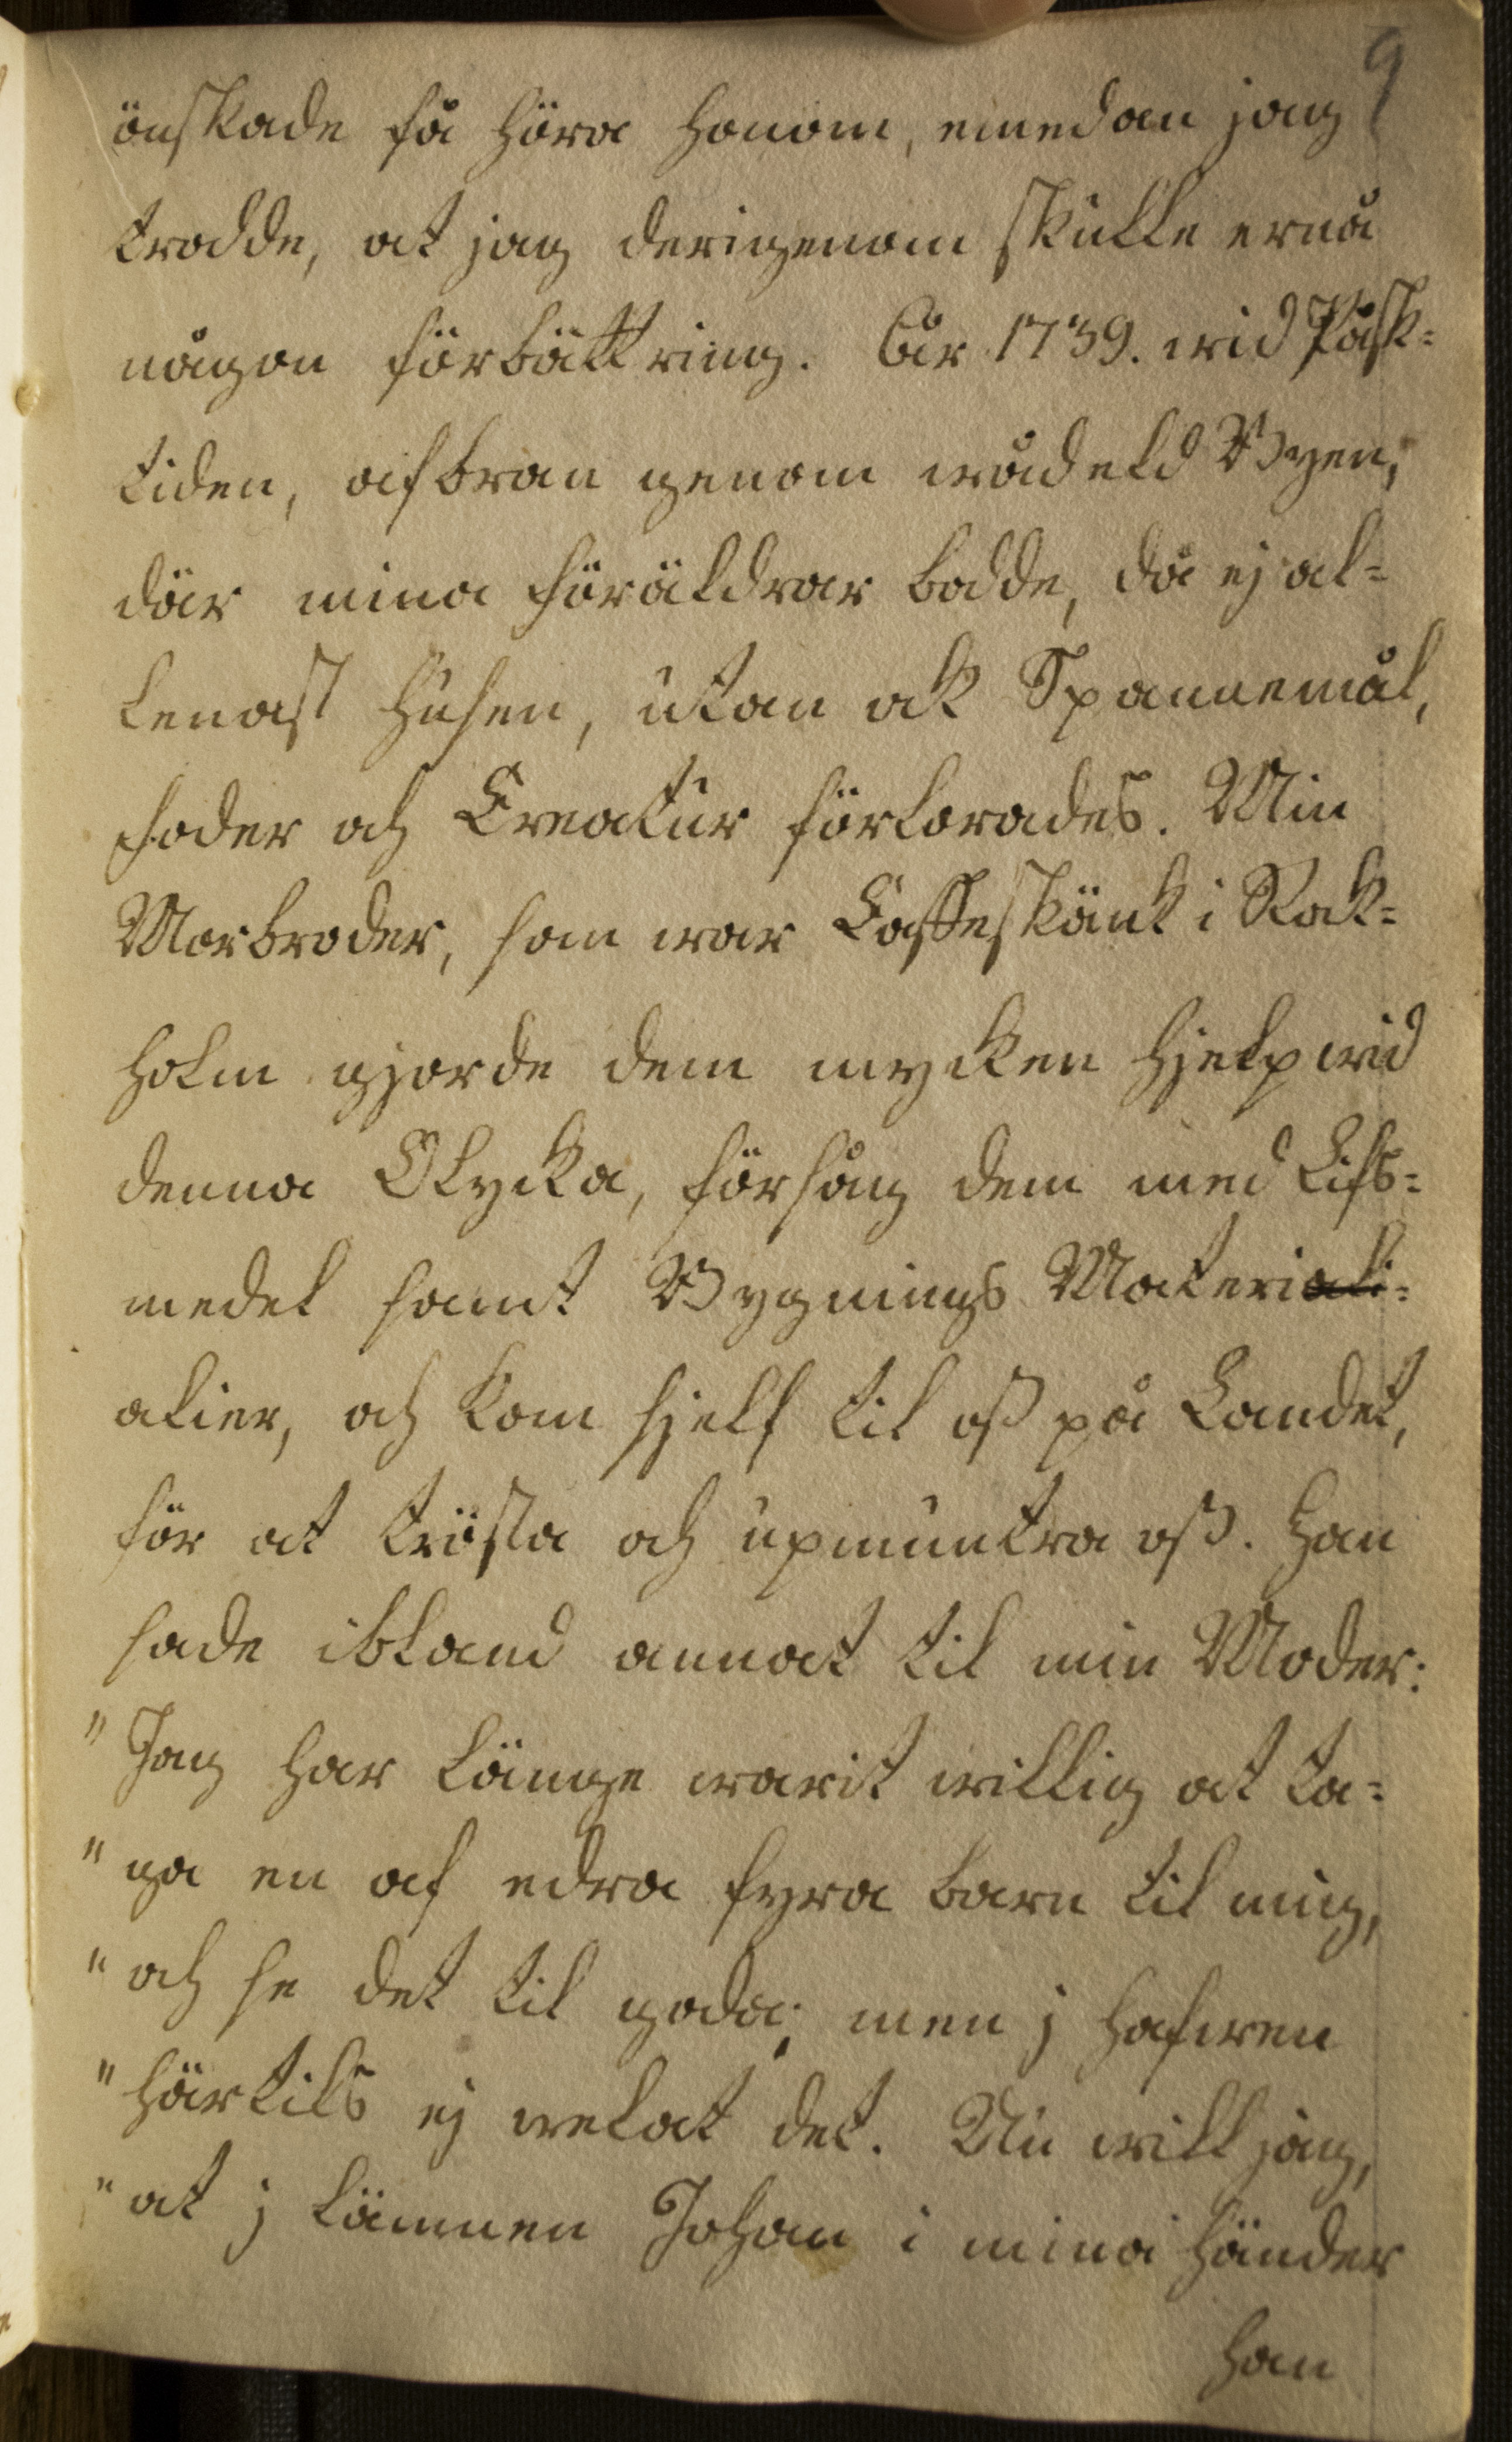 9
önskade få höra honom, emedan jag
trodde, at jag derigenom skulle ernå
någon förbättring. År 1739. wid Påsk=
tiden, afbran genom wådeld Byen,
där mina föräldrar bodde, då ej al=
lenast husen, utan ok Spannemål,
foder och Creatur förlorades. Min
Morbroder, som war Caffeskänk i Stok=
holm gjorde dem mycken hjelp wid
denna Olycka, försåg dem med Lifs=
medel samt Bygnings Materiali=
alier, och kom sjelf til oss på Landet,
för at trösta och upmuntra oss. Han
sade ibland annat til min Moder:
"Jag har länge warit willig at ta=
"ga en af edra fyra barn til mig,
"och se det til godo; men j hafwen
"härtils ej welat det. Nu will jag,
"at j lämnen Johan i mina händer
han